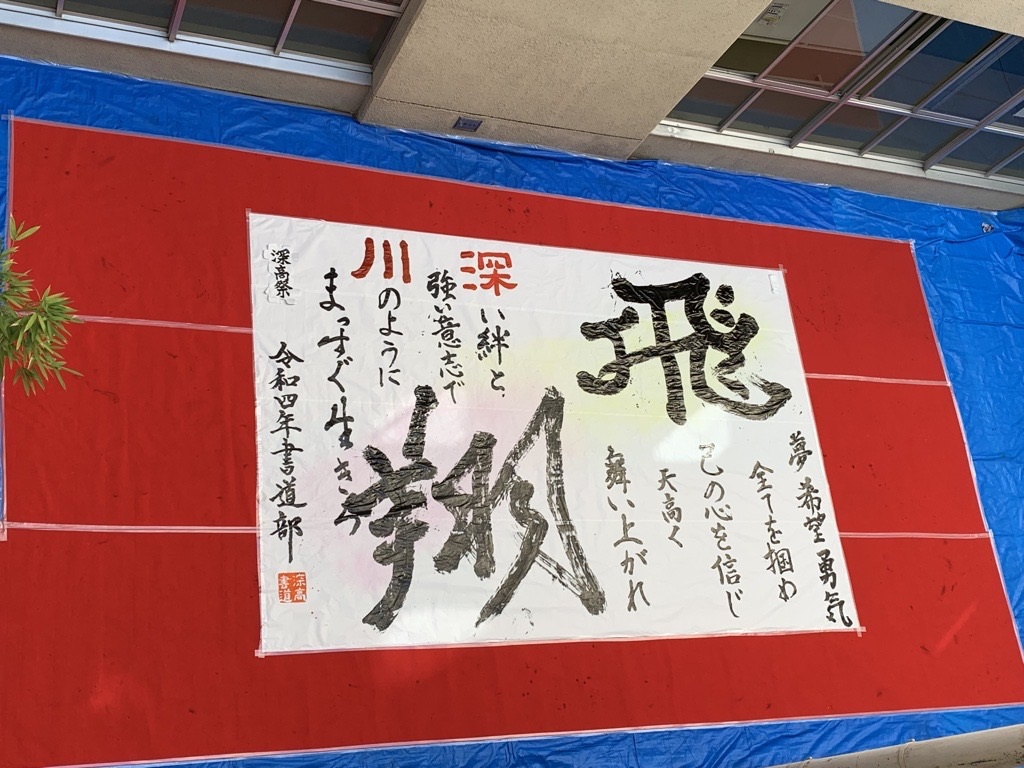 飛翔
夢希望勇気
全てを掴め
己の心を信じ
天高く
舞い上がれ
深い絆と
強い意志で
川のように
まっすぐ生きろ
深高祭
令和四年書道部
深高
書道